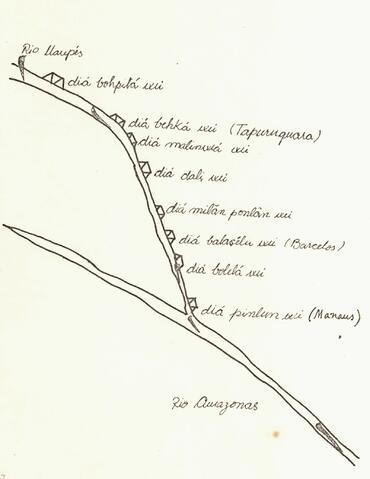 Rio Uaupés
diá bohpitá wi
diá behká wi (Tapuruquara)
diá malinwá wi
diá dali wi
diá milán ponlán wi
diá balasélu wi (Barcelos)
diá bolilá wi
diá pinlun wi (Manaus)
Rio Amazonas